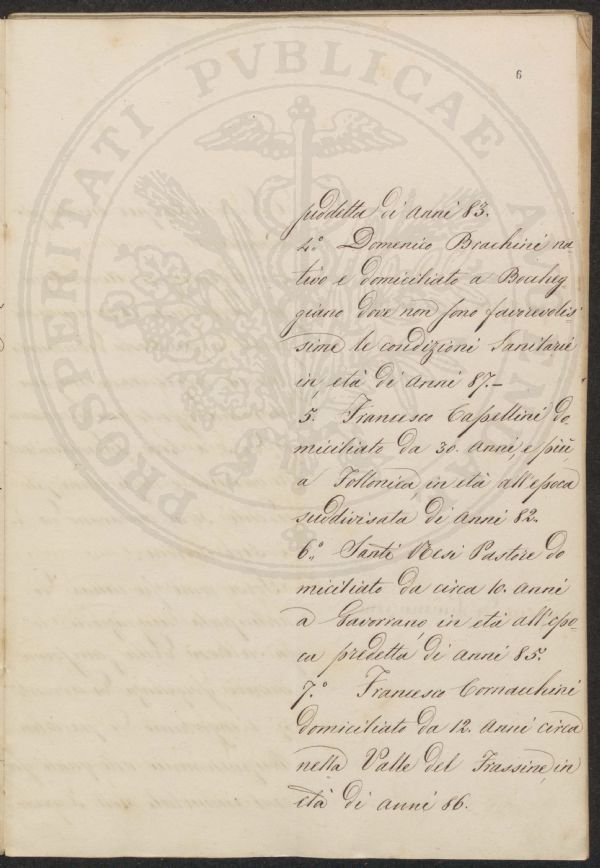 6
PROSPERITATI PVBLICAE AVGENDAE
predetta di anni 83.
4.° Domenico Brachini na
tivo e domiciliato a Boccheg
giano dove non sono favorevolis
sime le condizioni Sanitarie
in età di anni 87.–
5. Francesco Cappellini do
miciliato da 30. anni, e più
a Follonica, in età all'epoca
suddivisata di anni 82.
6.° Santi Nesi Pastore do
miciliato da circa 10. anni
a Gavorrano, in età all'epo-
ca predetta di anni 85.
7.° Francesco Cornacchini
domiciliato da 12. anni circa
nella Valle del Frassine, in
età di anni 86.